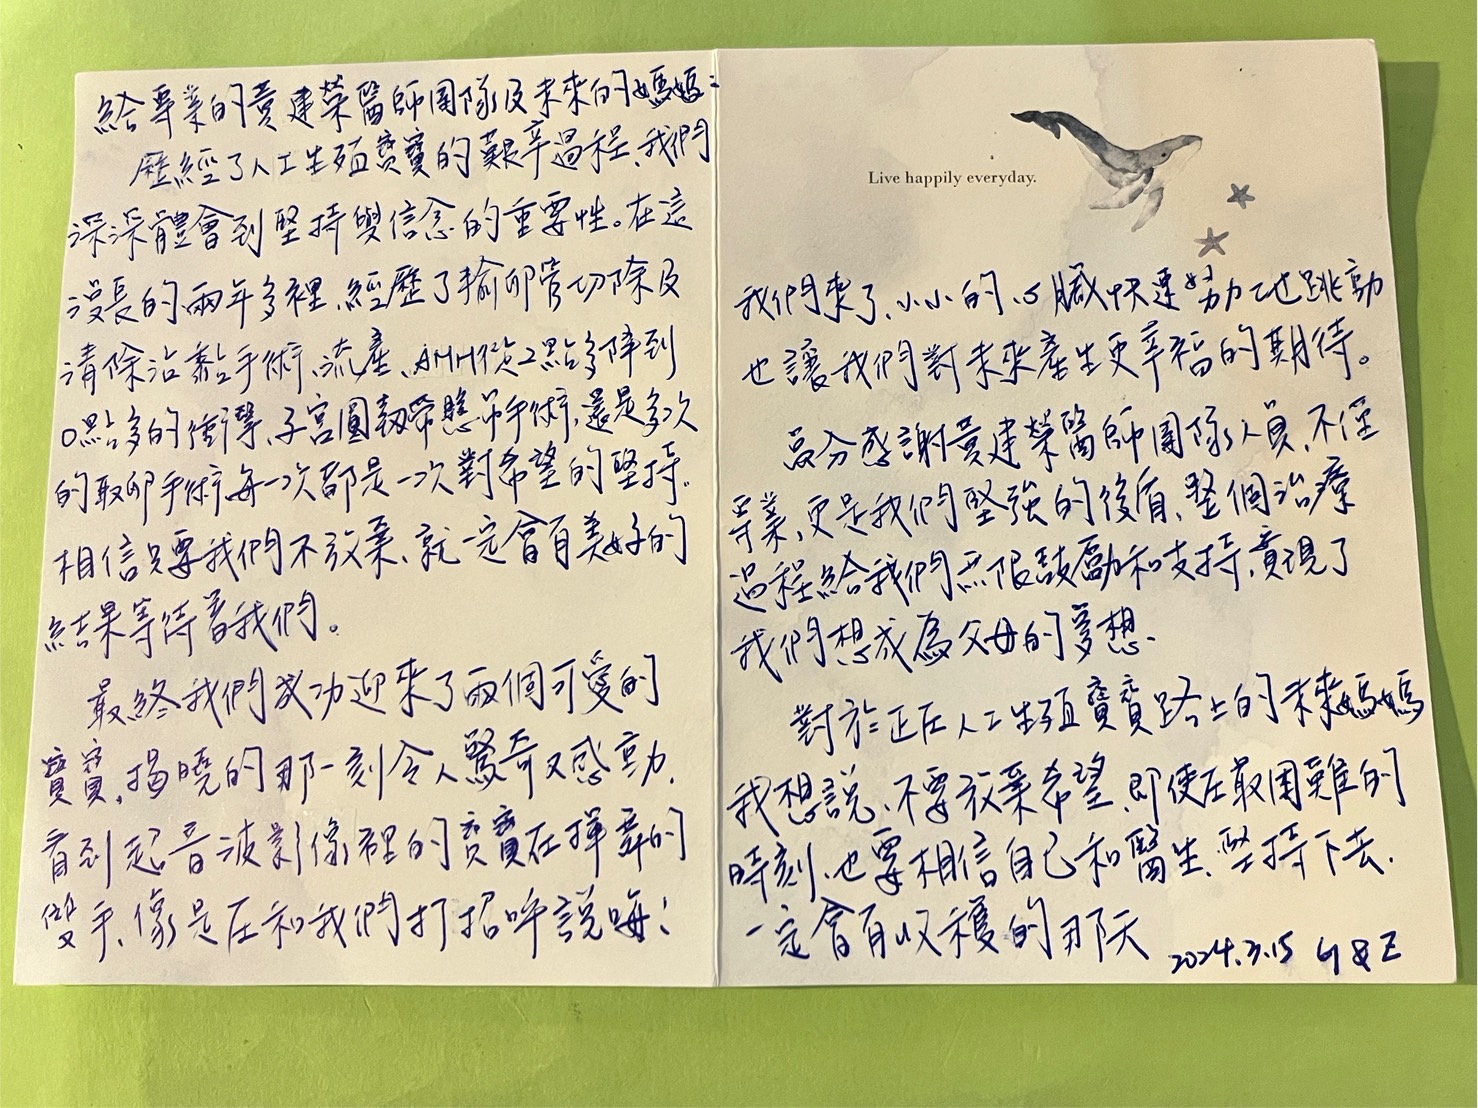 給專業的黃建榮醫師團隊及未來的媽媽：
歷經了人工生殖寶寶的艱辛過程、我們
深深體會到堅持與信念的重要性。在這
漫長的兩年多裡、經歷了輸卵管切除及
清除沾黏手術、流產、AMH從2點多降到
0點多的衝擊、子宮圓韌帶懸吊手術、還是多次
的取卵手術、每一次都是一次對希望的堅持。
相信只要我們不放棄、就一定會有美好的
結果等待著我們。
最終我們成功迎來了兩個可愛的
寶寶，揭曉的那一刻令人驚奇又感動，
看到超音波影像裡的寶寶在揮舞的
雙手、像是在和我們打招呼說嗨！
Live happily everyday.
我們來了、小小的心臟快速努力地跳動
也讓我們對未來產生更幸福的期待。
萬分感謝黃建榮醫師團隊人員、不僅
專業、更是我們堅強的後盾、整個治療
過程給我們無限鼓勵和支持、實現了
我們想成為父母的夢想、
對於正在人工生殖寶寶路上的未來媽媽
我想說、不要放棄希望、即使在最困難的
時刻、也要相信自己和醫生、堅持下去、
一定會有收穫的那天
2024.3.15 G & E